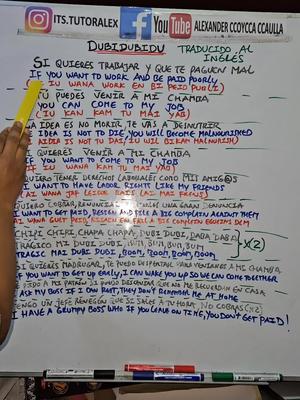 ITS.TUTORALEX f You Tube ALEXANDER CCOYCCA CCAULLA
DUBIDUBIDU TRADUCIDO AL INGLÉS
SI QUIERES TRABAJAR Y QUE TE PAGUEN MAL
IF YOU WANT TO WORK AND BE PAID POORLY
IU WANA WORK EN BI PEID PURLI)
TÚ PUEDES VENIR A MI CHAMBA
YOU CAN COME TO MY JOB
(IU KAN KAM TU MAI YAB)
LA IDEA ES NO MORIR, TE VAS A DESNUTRIR
IDEA IS NOT TO DIE, YOU WILL BECOME MALNOURISHED
QUIERES VENIR A MI CHAMBA
IF YOU WANT TO COME TO MY JOB
(IF IU WANA KAM TU MAI YAB)
QUIERO TENER DERECHOS LABORALES COMO MIS AMIG@S
I WANT TO HAVE LABOR RIGHTS LIKE MY FRIENDS
QUIERO COBRAR, RENUNCIAR UNA GRAN DENUNCIA
I WANT TO GET PAID, RESIGN AND FILE A BIG COMPLAIN AGAINST THEM
CHIPI CHIPI, CHAPA CHAPA, DUBI DUBI, DABA DABA
TRÁGICO MI DUBI DUBI, BUM, BUM, BUM, BUM
TRAGIC MAI DUBI DUBI, BOOM, BOOM, BOOM, BOOM
X(2)
SI QUIERES MADRUGAR, TE PUEDO DESPERTAR PARA VENIRNOS A MI CHAMBA
IF YOU WANT TO GET UP EARLY, I CAN WAKE YOU UP SO WE CAN COME TOGETHER
LE PIDO A MI PATRÓN SI PUEDO DESCANSAR QUE NO ME RECUERDAN EN CASA
ASK MY BOSS IF I CAN REST, THEY DON'T REMEMBER ME AT HOME
TENGO UN JEFE RENEGÓN QUE SI SALES A TU HORA NO COBRAS (X2)
I HAVE A GRUMPY BOSS WHO IF YOU LEAVE ON TIME, YOU DON'T GET PAID!